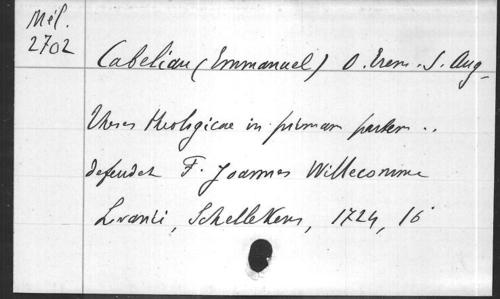 Mél.
2702
Cabeliau (Emmanuel) O. Erem. S. Aug.
Theses theologicae in primam partem ..
defendet F. Joannes Willecomme
Lovanii, Schellekens, 1724, 16